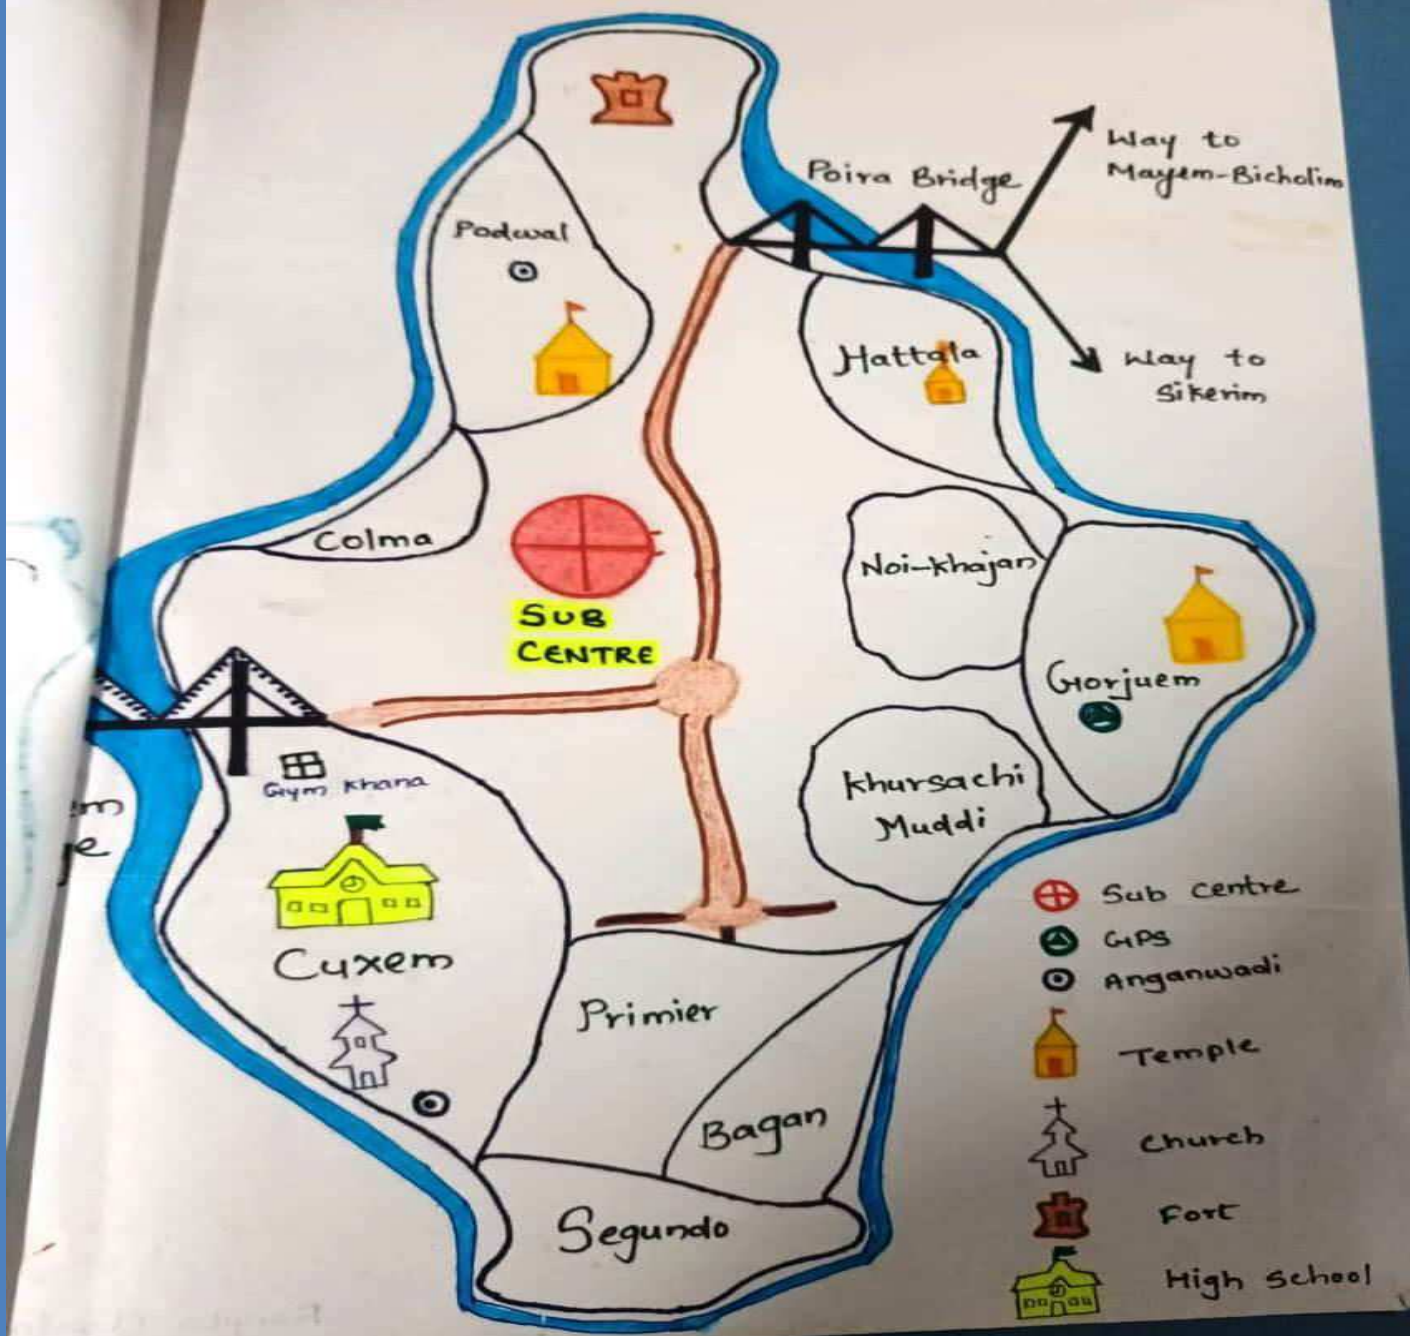 Poira Bridge
Way to
Mayem-Bicholim
Podwal
Hattala
Way to
Sikerim
Colma
Noi-Khajan
SUB
CENTRE
Gorjuem
Gym Khana
Khursachi
Muddi
em
Cuxem
Primier
Bagan
Segundo
Sub centre
GPS
Anganwadi
Temple
Church
Fort
High School